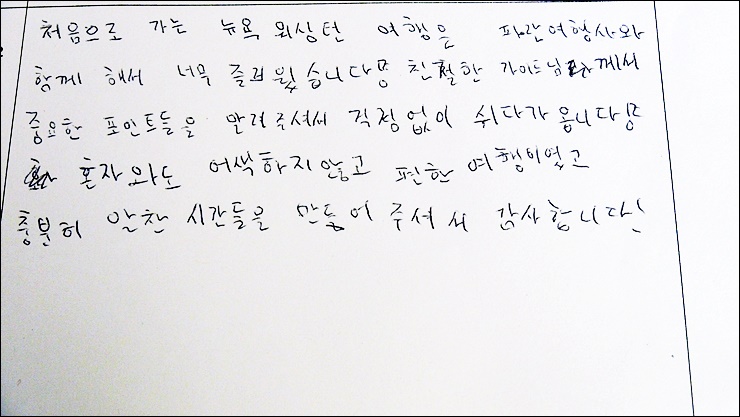 처음으로 가는 뉴욕 워싱턴 여행을 파란여행사와
함께 해서 너무 즐거웠습니다 친절한 가이드님께서
중요한 포인트들을 알려주셔서 걱정없이 쉬다가 옵니다
혼자와도 어색하지 않고 편한 여행이었고
충분히 알찬 시간들을 만들어 주셔서 감사합니다!